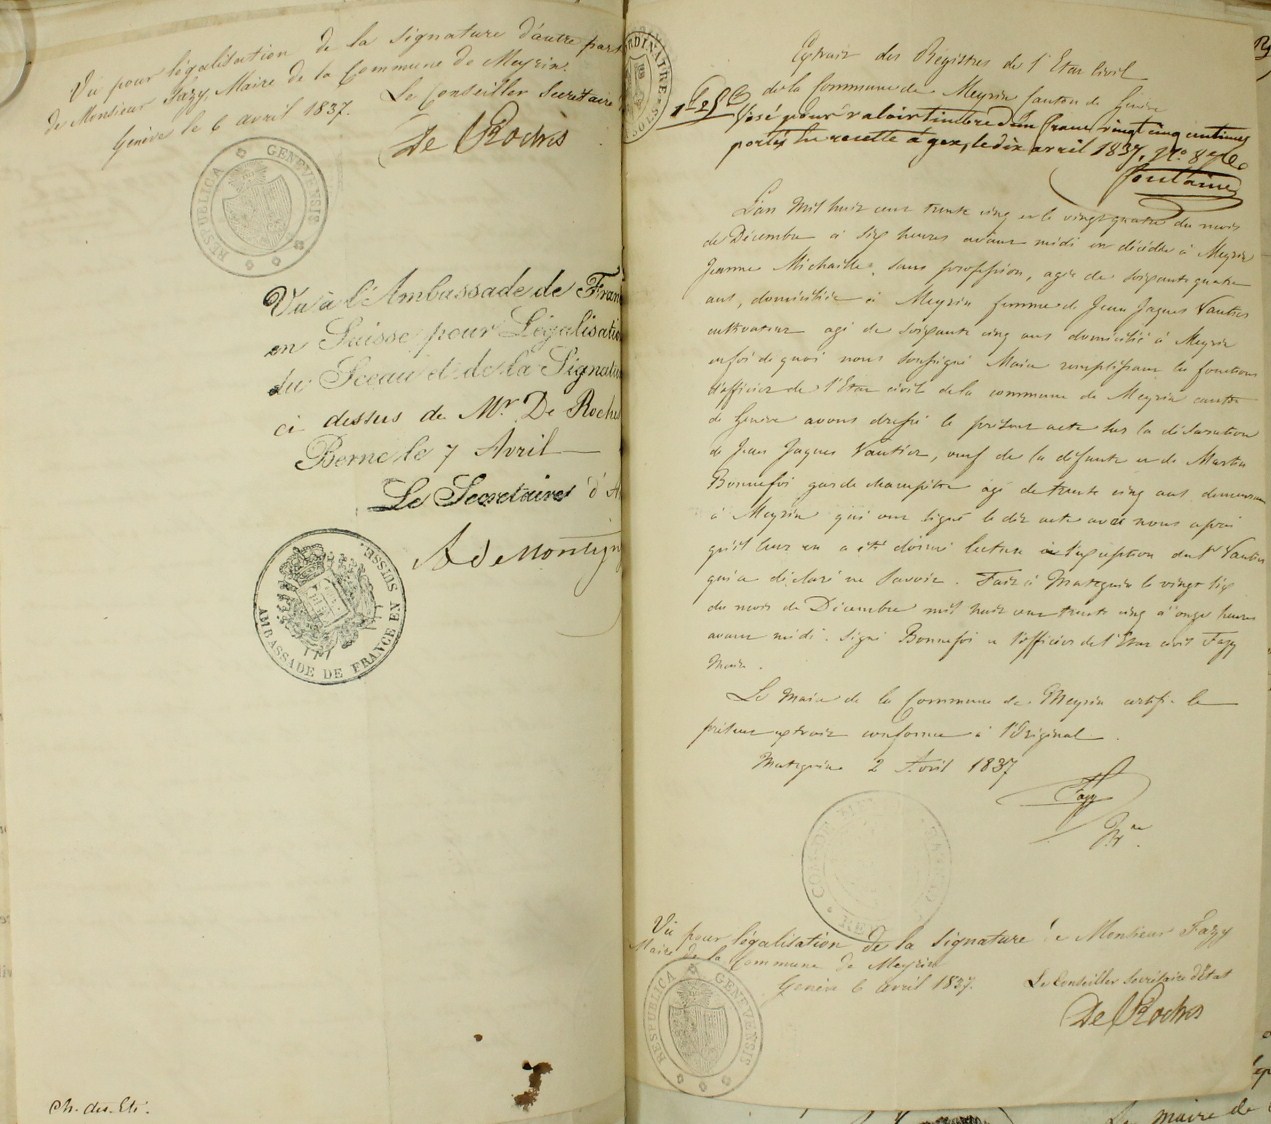 Vu pour légalisation de la signature d'autre part
de Monsieur Fazy, Maire de la Commune de Meyrin.
Genève le 6 avril 1837. Le Conseiller Secrétaire
De Roches
RESPUBLICA GENEVENSIS
Vu à l'Ambassade de Fran
en Suisse pour Légalisatio
du Sceau et de la Signatu
ci dessus de Mr. De Roche
Berne le 7 Avril
Le Secrétaire d'A
A de Montign
AMBASSADE DE FRANCE EN SUISSE.
Ch. des Etr.
Extrait des Registres de l'Etat Civil
de la Commune de Meyrin Canton de Genève
1f 25c Visé pour valoir timbre d'un franc vingt cinq centimes
portés en recette à gex, le dix avril 1837, No.
fontaine
L'an Mil huit cent trente cinq et le vingt quatre du mois
de Décembre à six heures avant midi est décédée à Meyrin
Jeanne Michaille, sans proffession, agée de soixante quatre
ans, domiciliée à Meyrin femme de Jean Jaques Vautier
cultivateur agé de soixante cinq ans domicilié à Meyrin
en foi de quoi nous soussigné Maire remplissant les fonctions
d'officier de l'Etat civil de la commune de Meyrin canton
de Genève avons dressé le présent acte sur la déclaration
de Jean Jaques Vautier, veuf de la défunte et de Martin
Bonnefoi garde champêtre agé de trente cinq ans demeurant
à Meyrin qui ont signé le dit acte avec nous après
qu'il leur en a été donné lecture à l'exception du dt Vautier
qui a déclaré ne savoir. Fait à Mategnin le vingt six
du mois de Décembre mil huit cent trente cinq à onze heures
avant midi. signé Bonnefoi et l'officier de l'Etat civil Fazy
Maire.
Le Maire de la Commune de Meyrin certifie le
présent extrait conforme à l'Original.
Mategnin 2 Avril 1837
Fazy
Mre.
Vu pour légalisation de la signature de Monsieur Fazy
Maire de la Commune de Meyrin
Genève 6 avril 1837. Le Conseiller Secrétaire d'Etat
De Roches
RESPUBLICA GENEVENSIS
Le maire de